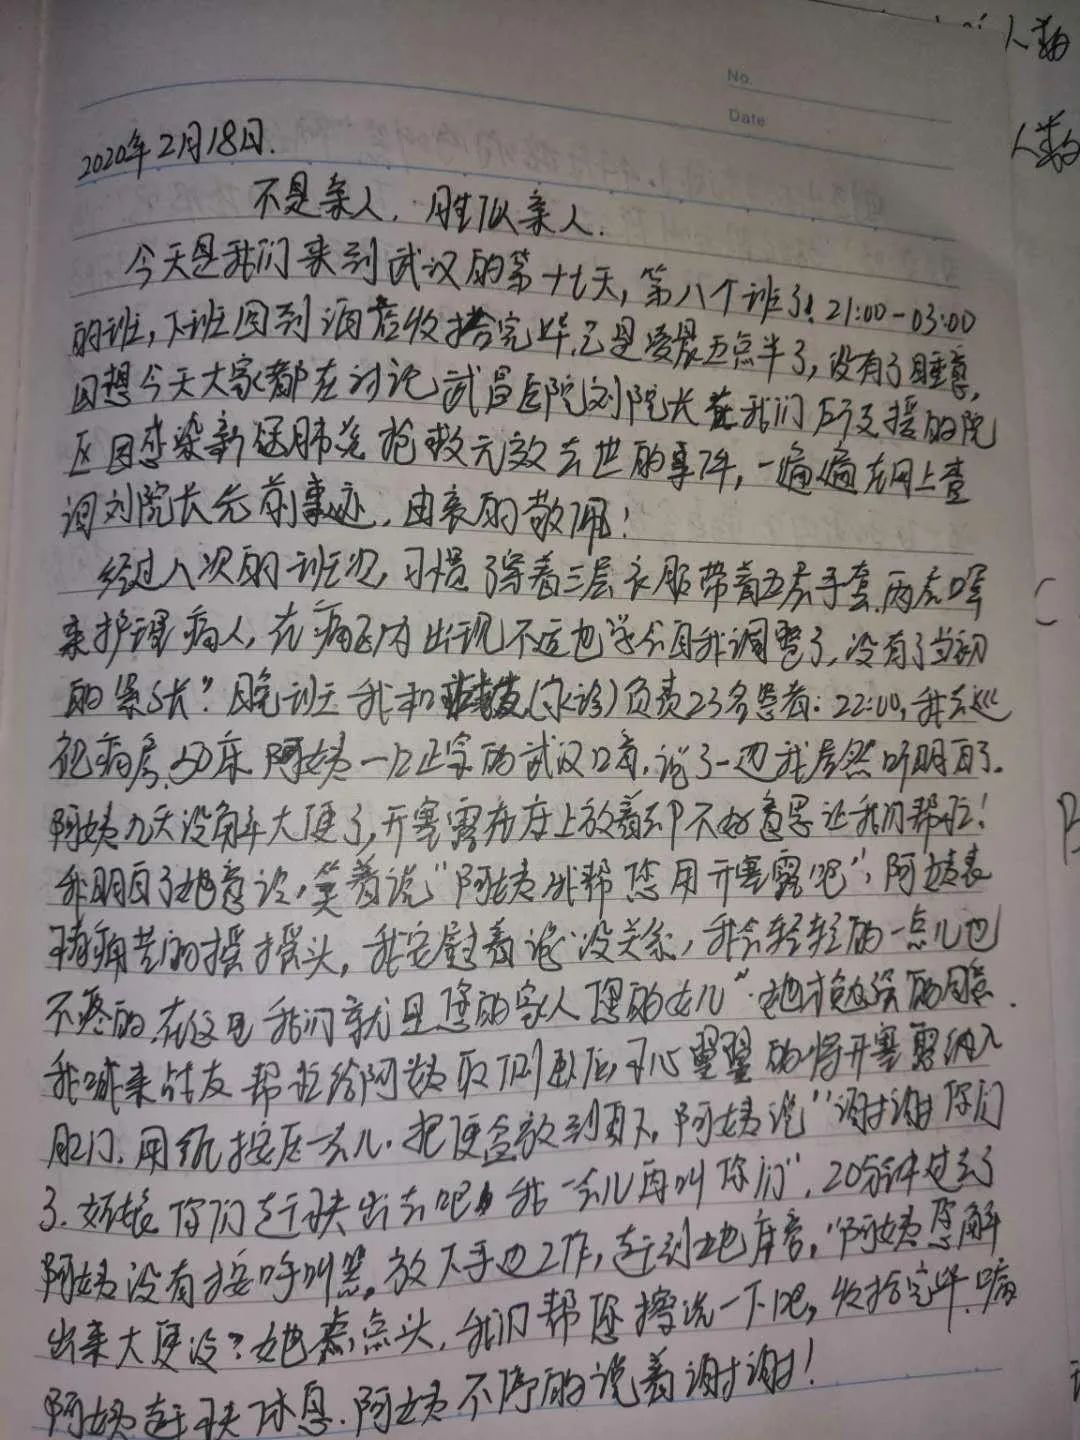 人数
No.
人数
Date
2020年2月18日.
不是亲人,胜似亲人.
今天是我们来到武汉的第十七天,第八个班了!21:00-03:00
的班,下班回到酒店收拾完毕,已是凌晨五点半了,没有了睡意,
回想今天大家都在讨论武昌医院刘院长在我们所支援的院
区因感染新冠肺炎抢救无效去世的事件,一遍遍在网上查
询刘院长先前事迹,由衷的敬佩!
经过八次的班次,习惯了穿着三层衣服带着五层手套,两层口罩
来护理病人,在病区内出现不适也学会自我调整了,没有了当初
的紧张?晚班我和(永诊)负责23名患者:22:00,我去巡
视病房,50床阿姨一口正宗的武汉口音,说了一边我居然听明白了.
阿姨九天没解大便了,开塞露在床上放着却不好意思让我们帮忙!
我明白了她意说,笑着说"阿姨我帮您用开塞露吧",阿姨表
情痛苦的摇摇头,我安慰着说"没关系,我会轻轻的一点儿也
不疼的,在这里我们就是您的家人您的女儿".她才勉强的同意.
我喊来战友帮忙给阿姨取侧卧位,小心翼翼的将开塞露纳入
肛门,用纸按压一会儿.把便盆放到身下,阿姨说"谢谢你们
了.姑娘你们赶快出去吧我一会儿再叫你们",20分钟过去了
阿姨没有按呼叫器,放下手边工作,赶到她床旁,"阿姨您解
出来大便没?她点点头,我们帮您擦洗一下吧,收拾完毕,嘱
阿姨赶快休息.阿姨不停的说着谢谢!